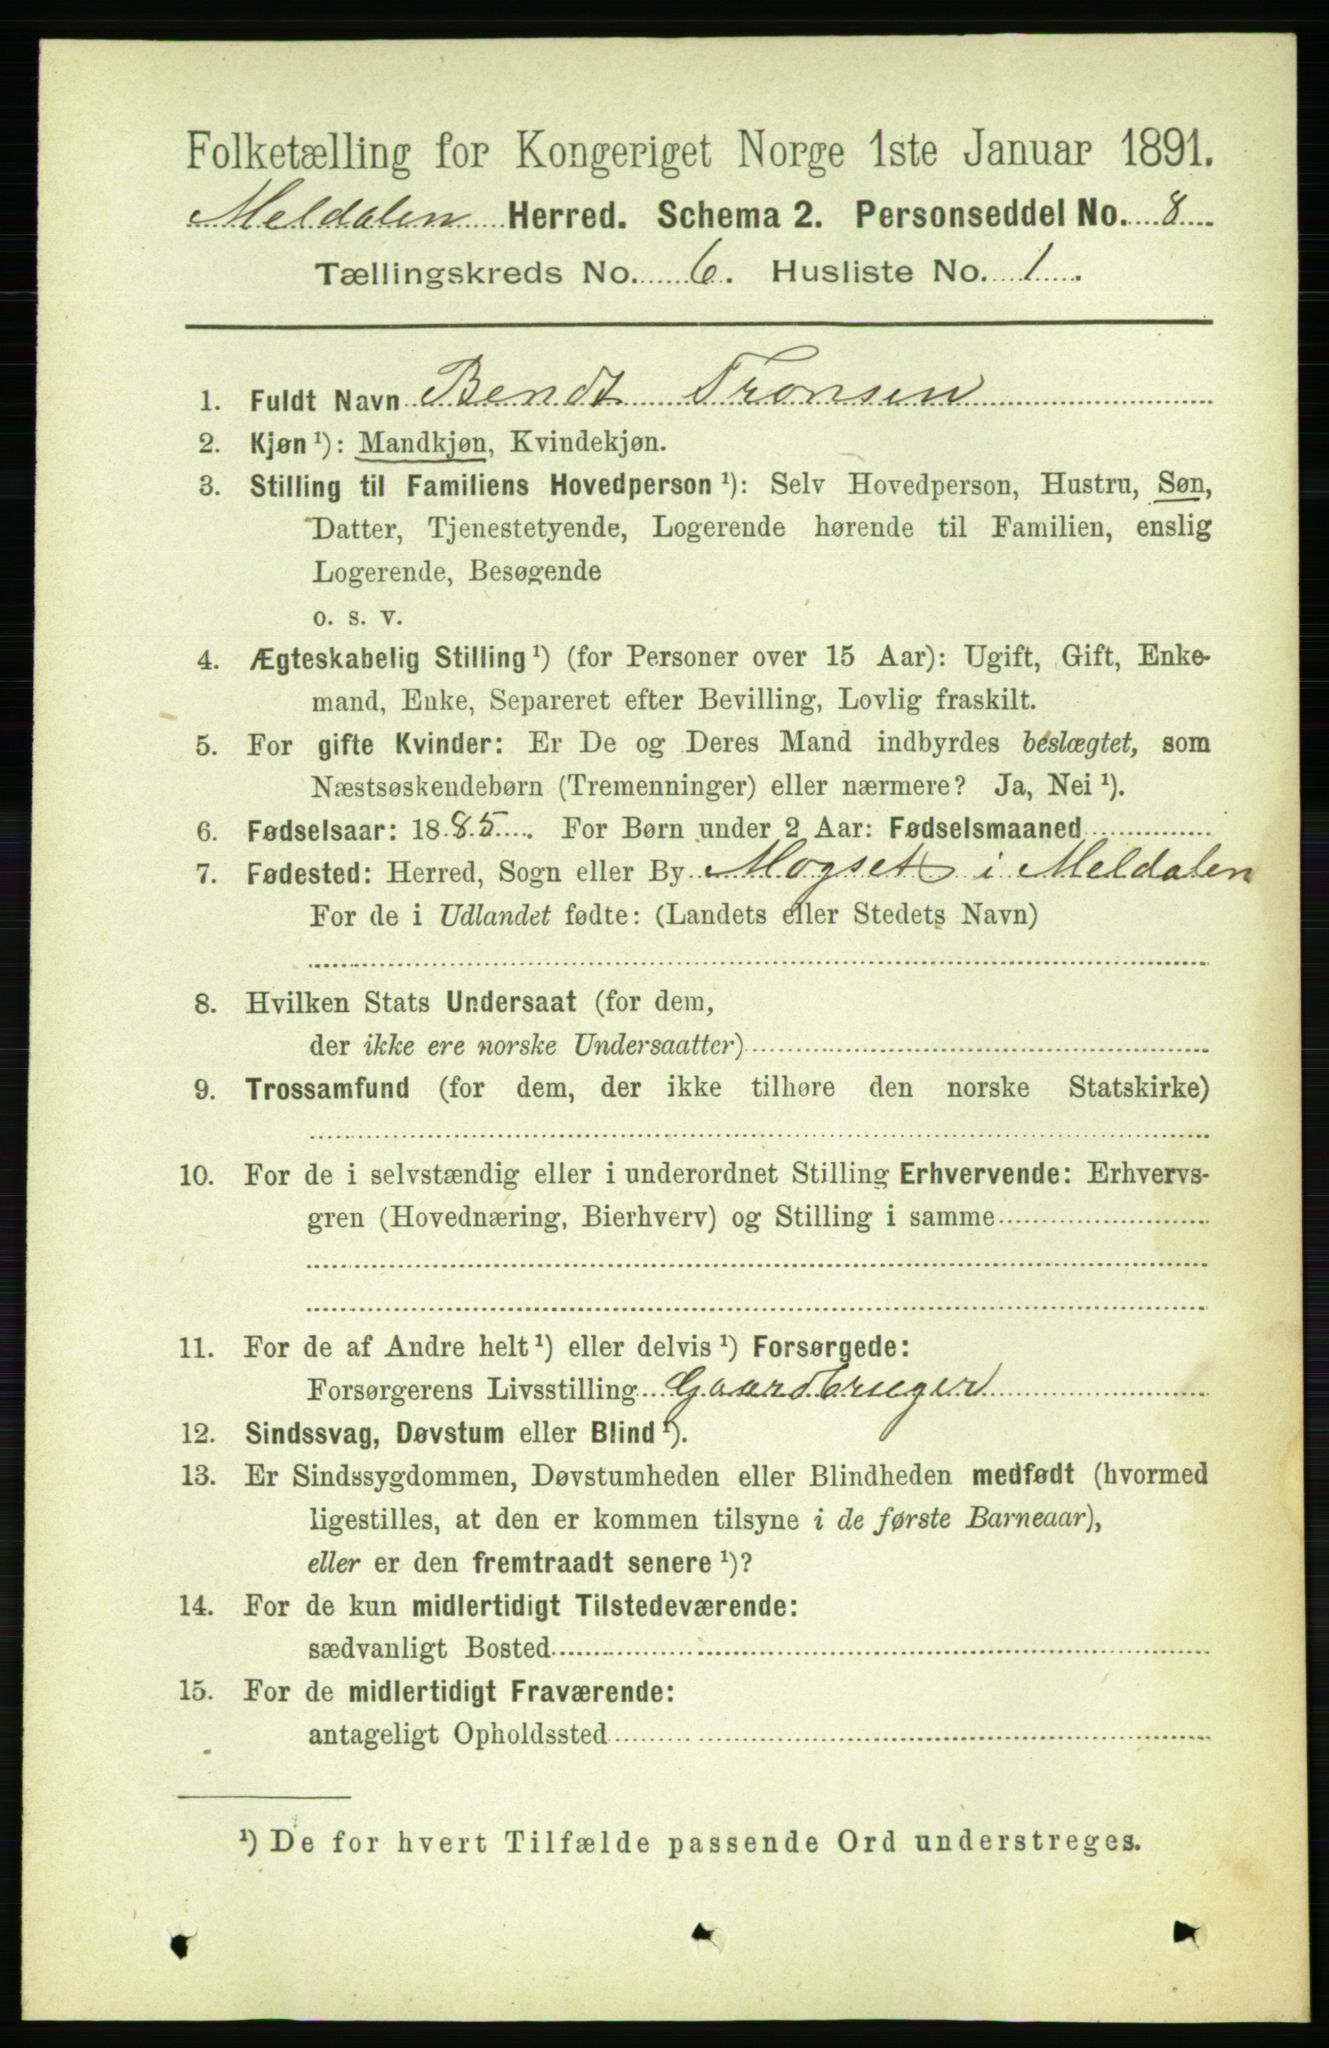 Folketælling for Kongeriget Norge 1ste Januar 1891.
Meldalen Herred. Schema 2. Personseddel No. 8
Tællingskreds No. 6. Husliste No. 1.
1. Fuldt Navn Bendt Tronsen
2. Kjøn ¹): Mandkjøn, Kvindekjøn.
3. Stilling til Familiens Hovedperson ¹): Selv Hovedperson, Hustru, Søn,
Datter, Tjenestetyende, Logerende hørende til Familien, enslig
Logerende, Besøgende
o. s. v.
4. Ægteskabelig Stilling ¹) (for Personer over 15 Aar): Ugift, Gift, Enke-
mand, Enke, Separeret efter Bevilling, Lovlig fraskilt.
5. For gifte Kvinder: Er De og Deres Mand indbyrdes beslægtet, som
Næstsøskendebørn (Tremenninger) eller nærmere? Ja, Nei ¹).
6. Fødselsaar: 1885. For Børn under 2 Aar: Fødselsmaaned
7. Fødested: Herred, Sogn eller By Mogset i Meldalen
For de i Udlandet fødte: (Landets eller Stedets Navn)
8. Hvilken Stats Undersaat (for dem,
der ikke ere norske Undersaatter)
9. Trossamfund (for dem, der ikke tilhøre den norske Statskirke)
10. For de i selvstændig eller i underordnet Stilling Erhvervende: Erhvervs-
gren (Hovednæring, Bierhverv) og Stilling i samme
11. For de af Andre helt ¹) eller delvis ¹) Forsørgede:
Forsørgerens Livsstilling Gaardbruger
12. Sindssvag, Døvstum eller Blind ¹).
13. Er Sindssygdommen, Døvstumheden eller Blindheden medfødt (hvormed
ligestilles, at den er kommen tilsyne i de første Barneaar),
eller er den fremtraadt senere ¹)?
14. For de kun midlertidigt Tilstedeværende:
sædvanligt Bosted
15. For de midlertidigt Fraværende:
antageligt Opholdssted
¹) De for hvert Tilfælde passende Ord understreges.